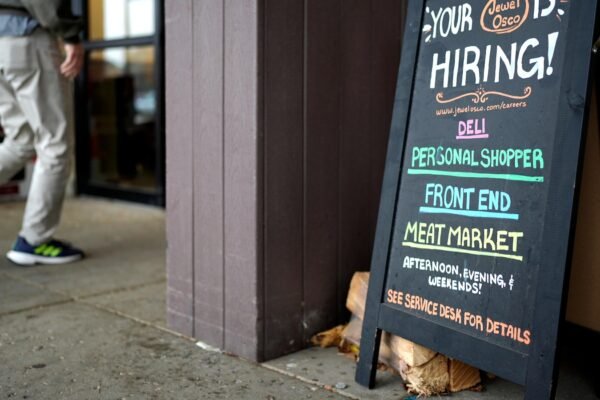 YOUR Jewel Osco IS
HIRING!
www.jewelosco.com/careers
DELI
PERSONAL SHOPPER
FRONT END
MEAT MARKET
AFTERNOON, EVENING, &
WEEKENDS!
SEE SERVICE DESK FOR DETAILS